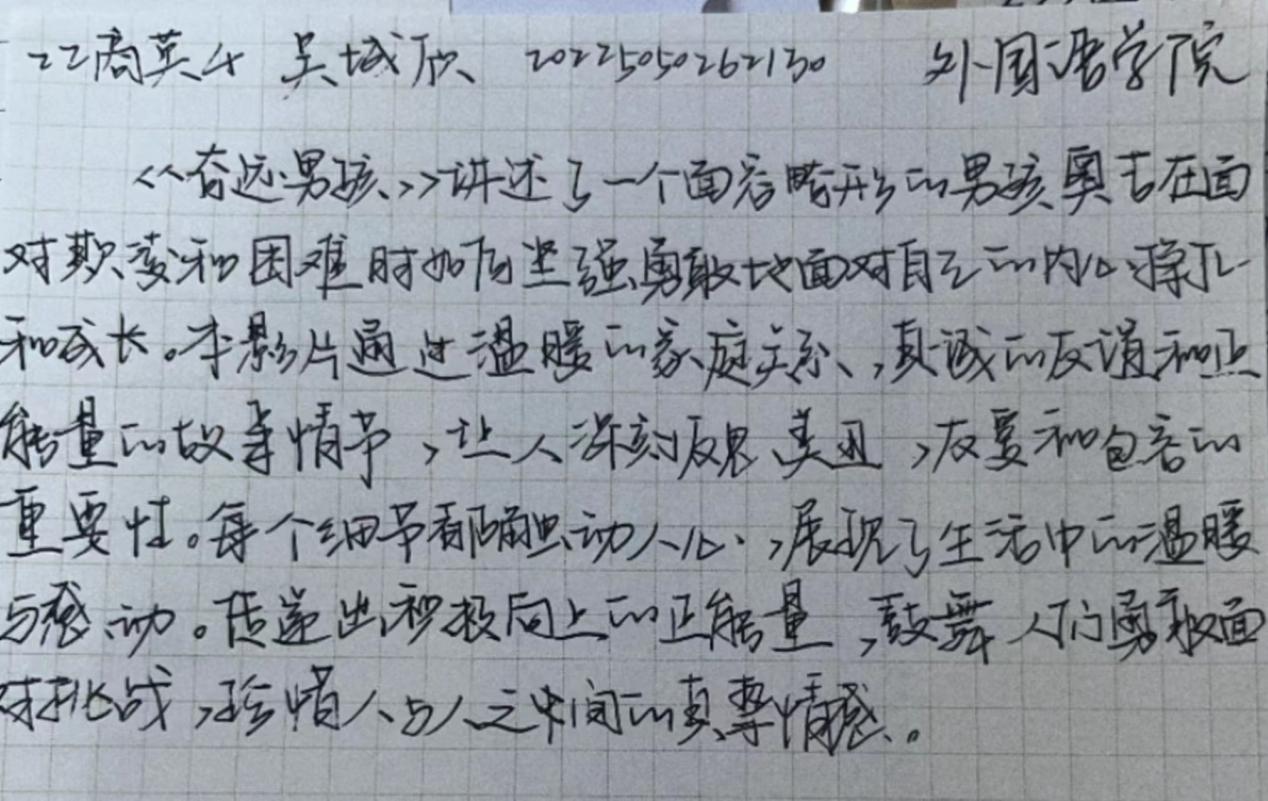 22商英4 吴城欣 20225050262130 外国语学院
《奇迹男孩》讲述了一个面容畸形的男孩奥吉在面
对欺凌和困难时如何坚强勇敢地面对自己的内心挣扎
和成长。本影片通过温暖的家庭关系,真诚的友谊和正
能量的故事情节,让人深刻反思美丑,友爱和包容的
重要性。每个细节都触动人心,展现了生活中的温暖
与感动。传递出积极向上的正能量,鼓舞人们勇敢面
对挑战,珍惜人与人之间的真挚情感。